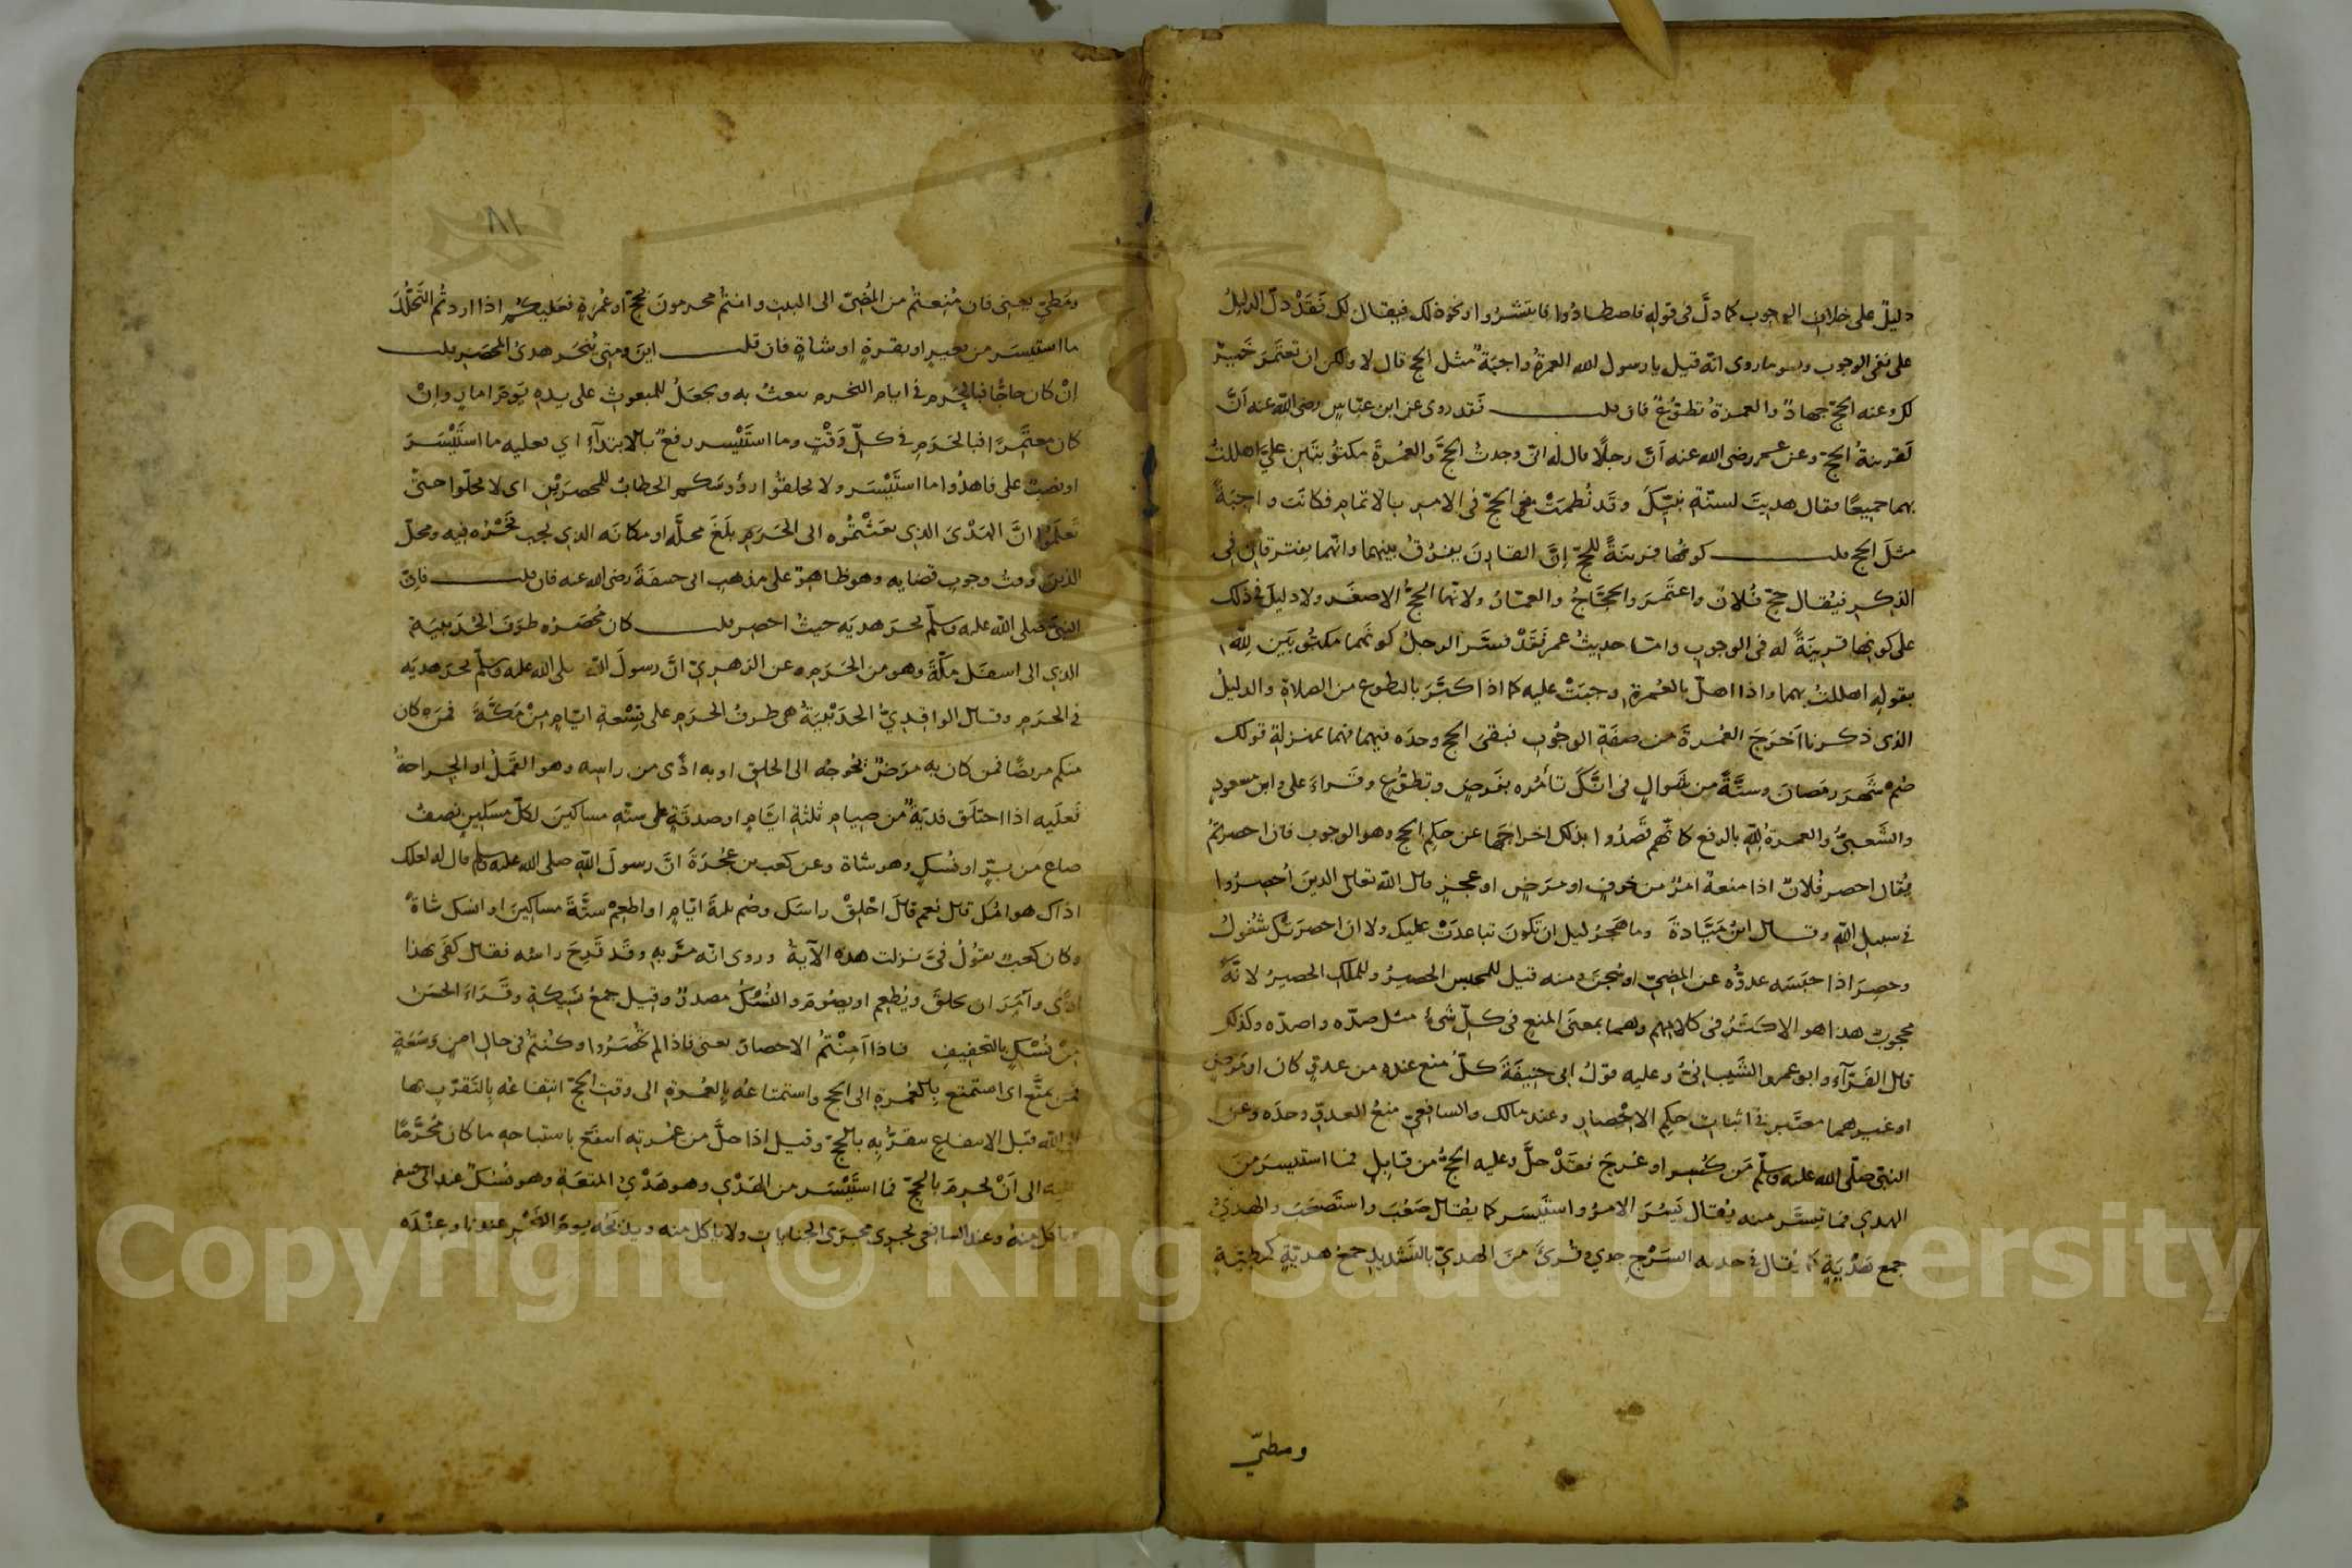 دليل على خلاف الوجوب كما دلّ في قوله فاصطادوا فانتشروا ونحو ذلك فيقال لك فقد دلّ الدليل
على نفي الوجوب وهو ما روى انه قيل يا رسول الله العمرة واجبة مثل الحج قال لا ولكن ان تعتمر خير
لك وعنه الحج جهاد والعمرة تطوع فان قلت فقد روى عن ابن عباس رضى الله عنه انّ
لقرينة الحج وعن عمر رضى الله عنه انّ رجلا قال له انى وجدت الحج والعمرة مكتوبتين علىّ اهللت
بهما جميعا فقال هديت لسنّة نبيّك وقد نُظمت مع الحج في الامر بالاتمام فكانت واجبة
مثل الحج قلت كونها قرينة للحج انّ القارن يقرن بينهما وانهما يقترقان في
الذكر فيقال حج فلان واعتمر والحجّاج والعمّار ولانها الحج الاصغر ولا دليل في ذلك
على كونها قرينة له في الوجوب وامّا حديث عمر فقد فسّر الرجل كونهما مكتوبتين لله
بقوله اهللت بهما واذا اهلّ بالعمرة وجبت عليه كما اذا كبّر بالتطوع من الصلاة والدليل
الذى ذكرنا اخرج العمرة من صفة الوجوب فبقى الحج وحده فيهما فهما بمنزلة قولك
صم شهر رمضان وستّة من شوال في انّك تأمره بفرض وتطوّع وقراء على وابن مسعود
والشعبىّ والعمرة لله بالرفع كانّهم قصدوا بذلك اخراجها عن حكم الحج وهو الوجوب فان احصرتم
يقال احصر فلان اذا منعه امر من خوف او مرض او عجز قال الله تعالى الذين احصروا
في سبيل الله وقال ابن ميّادة وما هجر ليلى ان تكون تباعدت عليك ولا ان احصرتك شغول
وحصر اذا حبسه عدوّه عن المضىّ او سجن ومنه قيل للمحبس الحصير وللملك الحصير لانه
محجوب هذا هو الاكثر في كلامهم وهما بمعنى المنع في كلّ شىء مثل صدّه واصدّه وكذلك
قال الفرّاء وابو عمرو الشيبانىّ وعليه قول ابى حنيفة كلّ منع عنده من عدوّ كان او مرض
او غيرهما معتبر في اثبات حكم الاحصار وعند مالك والشافعىّ منع العدوّ وحده وعن
النبىّ صلّى الله عليه وسلّم من كُسر او عرج فقد حلّ وعليه الحج من قابل فما استيسر من
الهدى فما تيسّر منه يقال يسر الامر واستيسر كما يقال صعب واستصعب والهدىُ
جمع هدْية كما يقال في جدية السرج جدى وقرئ من الهدىّ بالتشديد جمع هديّة كمطيّة
ومطىّ
١٨١
ومطىّ يعنى فان مُنعتم من المضىّ الى البيت وانتم محرمون بحج او عمرة فعليكم اذا اردتم التحلّل
ما استيسر من بعير او بقرة او شاة فان قلت اين ومتى يُنحر هدى المحصر قلت
ان كان حاجّا فبالحرم في ايام النحر يبعث به ويجعل للمبعوث على يده يوم امار وان
كان معتمرا فبالحرم في كلّ وقت وما استيسر رفع بالابتداء اى فعليه ما استيسر
او نصب على فاهدوا ما استيسر ولا تحلقوا رؤوسكم الخطاب للمحصرين اى لا تحلّوا حتّى
تعلموا انّ الهدى الذى بعثتموه الى الحرم بلغ محلّه او مكانه الذى يجب نحره فيه ومحلّ
الدين وقت وجوب قضايه وهو ظاهر على مذهب ابى حنيفة رضى الله عنه فان قلت فانّ
النبىّ صلى الله عليه وسلّم نحر هديه حيث احصر قلت كان محصره طرف الحديبية
الذى الى اسفل مكّة وهو من الحرم وعن الزهرىّ انّ رسول الله صلى الله عليه وسلّم نحر هديه
في الحرم وقال الواقدىّ الحديبية هى طرف الحرم على تسعة اميال من مكّة فمن كان
منكم مريضا فمن كان به مرض يحوجه الى الحلق او به اذًى من راسه وهو القمل او الجراحة
فعليه اذا احتلق فدية من صيام ثلثة ايّام او صدقة على ستّة مساكين لكلّ مسكين نصف
صاع من برّ او نسك وهو شاة وعن كعب بن عجرة انّ رسول الله صلى الله عليه وسلم قال له لعلك
اذاك هوامّك قال نعم قال احلق راسك وصم ثلثة ايّام او اطعم ستّة مساكين او انسك شاة
وكان كعب يقول فىّ نزلت هذه الآية وروى انه مرّ به وقد قرح راسه فقال كفى بهذا
اذًى وامر ان يحلق ويُطعم او يصوم والنسك مصدر وقيل جمع نسيكة وقراء الحسن
من نسْك بالتخفيف فاذا امنتم الاحصار يعنى فاذا لم تحصروا وكنتم في حال امن وسعة
فمن تمتّع اى استمتع بالعمرة الى الحج واستمتاعه بالعمرة الى وقت الحج انتفاعه بالتقرّب بها
الى الله قبل الانتفاع بتقرّبه بالحجّ وقيل اذا حلّ من عمرته انتفع باستباحة ما كان محرّما
عليه الى ان يحرم بالحجّ فما استيسر من الهدى وهو هدى المتعة وهو نسك عند ابى حنيفة
ويأكل منه وعند الشافعى يجرى مجرى الجنايات ولا يأكل منه ويذبحه يوم النحر عندنا وعنده